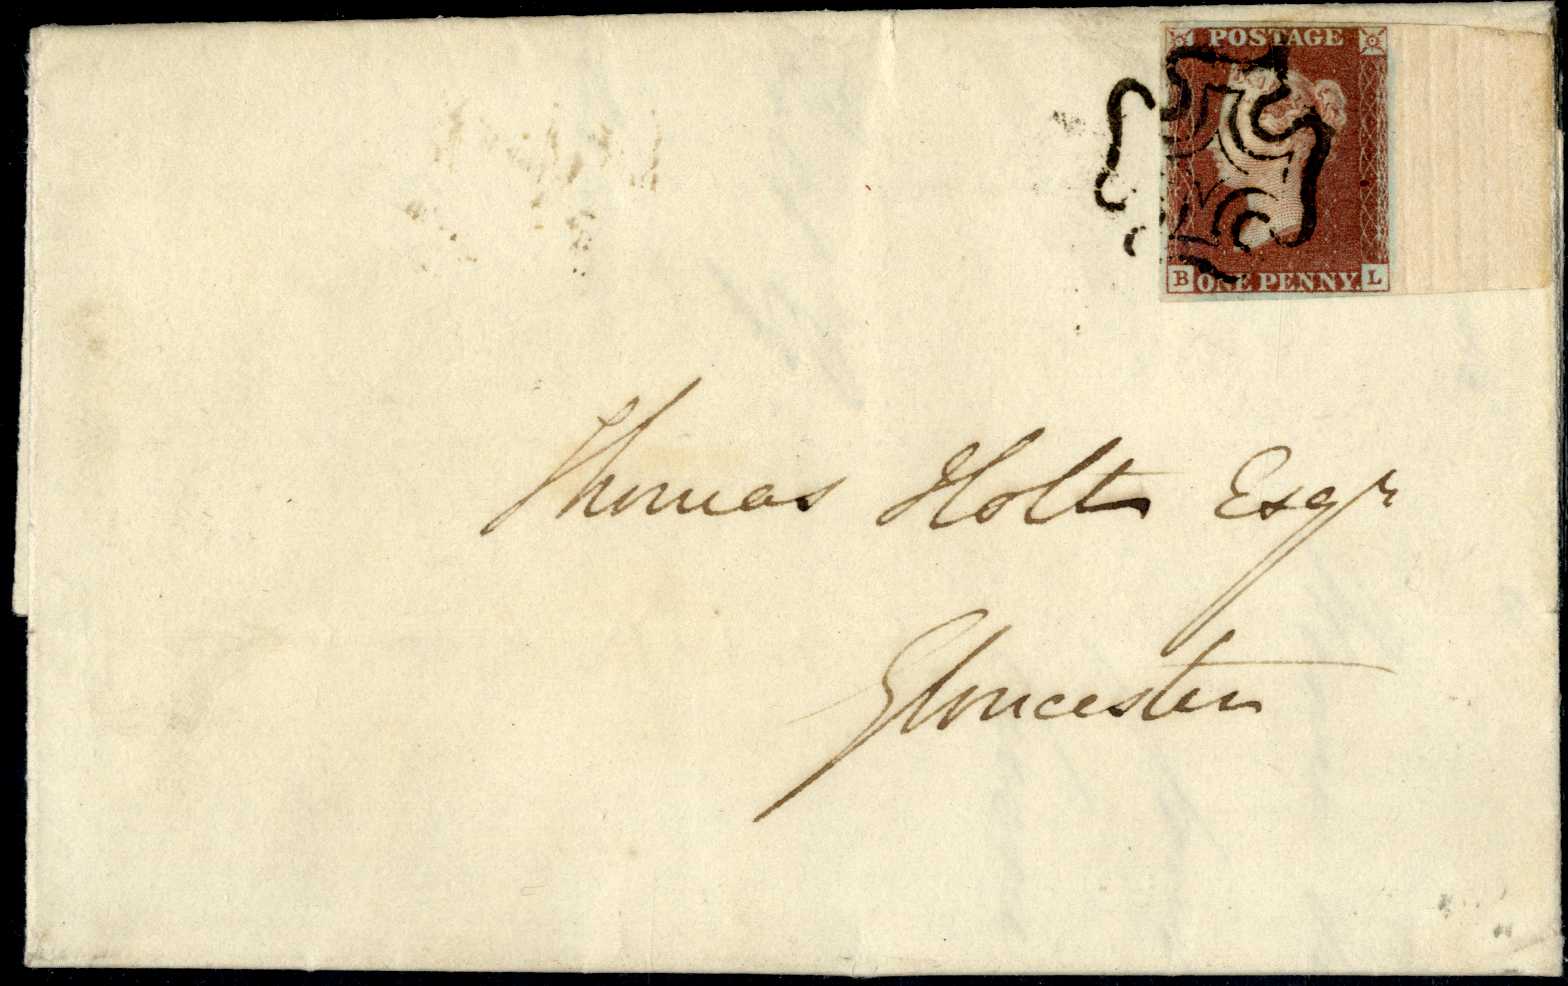 POSTAGE
B ONE PENNY. L
Thomas Holt Esqr
Gloucester